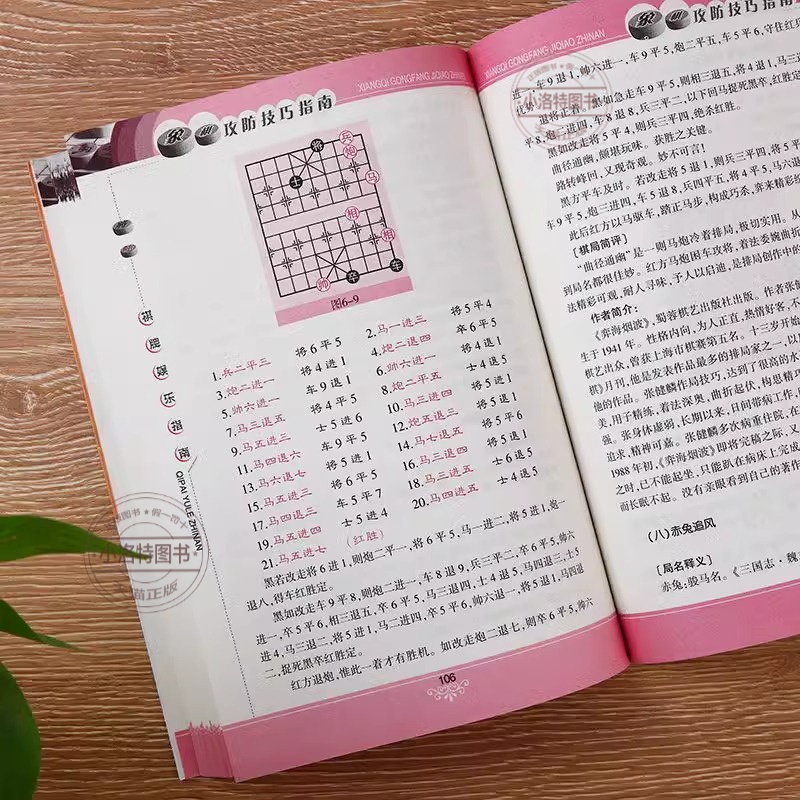 XIANGQI GONGFANG JIQIAO ZHINAN
象棋攻防技巧指南
将 兵
炮
士 马
相
相
帅 卒 车
图6-9
棋牌娱乐指南
QIPAI YULE ZHINAN
1.兵二平三 将6平5 2.马一进三 将5平4
3.炮二进一 将4进1 4.炮二退四 卒6平5
5.帅六进一 车9退1 6.帅六进一 将4退1
7.马三退五 将4平5 8.炮二平五 士4退5
9.马五进三 士5进6 10.马三进五 将5进1
11.马四退六 车9平5 12.炮五退三 将5进1
13.马六退七 将5进1 14.马七退五 将5平6
15.马五进三 将6平5 16.马三退四 将5退1
17.马四退三 车5平7 18.马三进五 将5退1
19.马五进四 将5进1 20.马四进五 士6退5
21.马五进七 士5进4 (红胜) 士4退5
黑若改走将6进1,则炮二平一,将6平5,马一进二,将5进1,炮一
退八,得车红胜定。
黑如改走车9平8,则炮二进一,车8退9,兵三平二,卒6平5,帅六
进一,卒5平6,相三退五,卒6平5,马三退四,士4退5,马四退三,士5
进4,马三退二,将5进1,马二进四,卒5平6,帅六退一,将5退1,马四退
二,捉死黑卒红胜定。
红方退炮,惟此一着才有胜机。如改走炮二退七,则卒6平5,帅六
106
象棋攻防技巧指南
XIANGQI GONGFANG JIQIAO ZHINAN
进一,车9退1,帅六进一,车9平5,炮二平五,车5平6,守住红兵
退将正和。
黑如急走车9平5,则相三退五,将4退1,马三
平8,炮二进四,车8退8,兵三平二,以下回马捉死黑卒,红胜定
黑如改走将5平4,则兵三平四,绝杀红胜。
曲径通幽,颇堪玩味。获胜之关键。
路转峰回,又现奇观。妙不可言!
黑方平车及时。若改走将5退1,则兵三平四,将5平
车9平5,炮三进四,车5退8,兵四平五,将4平5,马六退
此后红方以马驱车,踏正马步,构成巧杀,弈来精彩纷
[棋局简评]
“曲径通幽”是一则马炮冷着排局,极切实用。从
到局名都很佳妙。红方马炮困车攻将,着法委婉曲折
法精彩可观,耐人寻味,予人以启迪,是排局创作中的
作者简介:
《弈海烟波》,蜀蓉棋艺出版社出版。作者张健
生于1941年。性格内向,为人正直,热情好客,不
棋艺出众,曾获上海市棋赛第五名。十三岁开始
棋》月刊,他是发表作品最多的排局家之一,以
他的作品。张健麟作局技巧,达到了很高的水
美,用子精练,着法深奥,曲折起伏,构思精巧
张。张身体虚弱,长期以来,日间带病工作,
追求,精神可嘉。张健麟多次病重住院,在
1988年初,《弈海烟波》即将完稿之际,又
之时,已不能起坐,只能趴在病床上完成
而长眠不起。没有亲眼看到自己的著作
(八)赤兔追风
[局名释义]
赤兔:骏马名。《三国志·魏
小洛特图书
小洛特图书